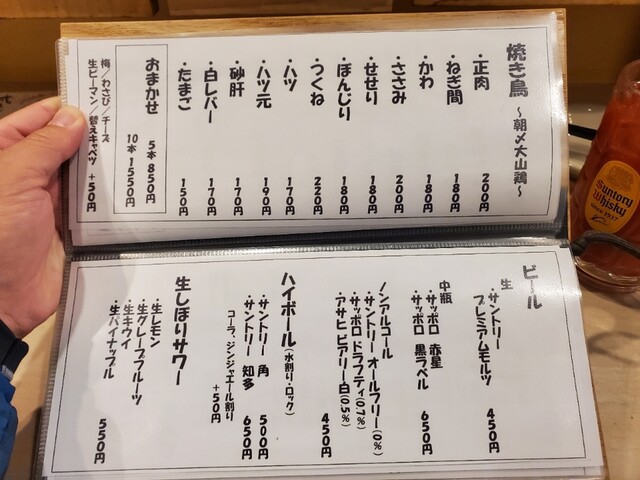 焼き鳥 ～朝〆大山鶏～
・正肉 200円
・ねぎ間 180円
・かわ 180円
・ささみ 200円
・せせり 180円
・ぼんじり 180円
・つくね 220円
・ハツ 170円
・ハツ元 190円
・砂肝 170円
・白レバー 170円
・たまご 150円
おまかせ
5本 850円
10本 1550円
梅/わさび/チーズ
生ピーマン 替えキャベツ +50円
ビール
生
・サントリー
プレミアムモルツ 450円
中瓶
・サッポロ 赤星
・サッポロ 黒ラベル 650円
ノンアルコール
・サントリー オールフリー(0%)
・サッポロ ドラフティ(0.7%)
・アサヒ ビアリー白(0.5%) 450円
ハイボール(水割り・ロック)
・サントリー 角 500円
・サントリー 知多 650円
コーラ、ジンジャエール割り
+50円
生しぼりサワー
・生レモン
・生グレープフルーツ
・生キウイ
・生パイナップル 550円
Suntory
Whisky
Since 1937